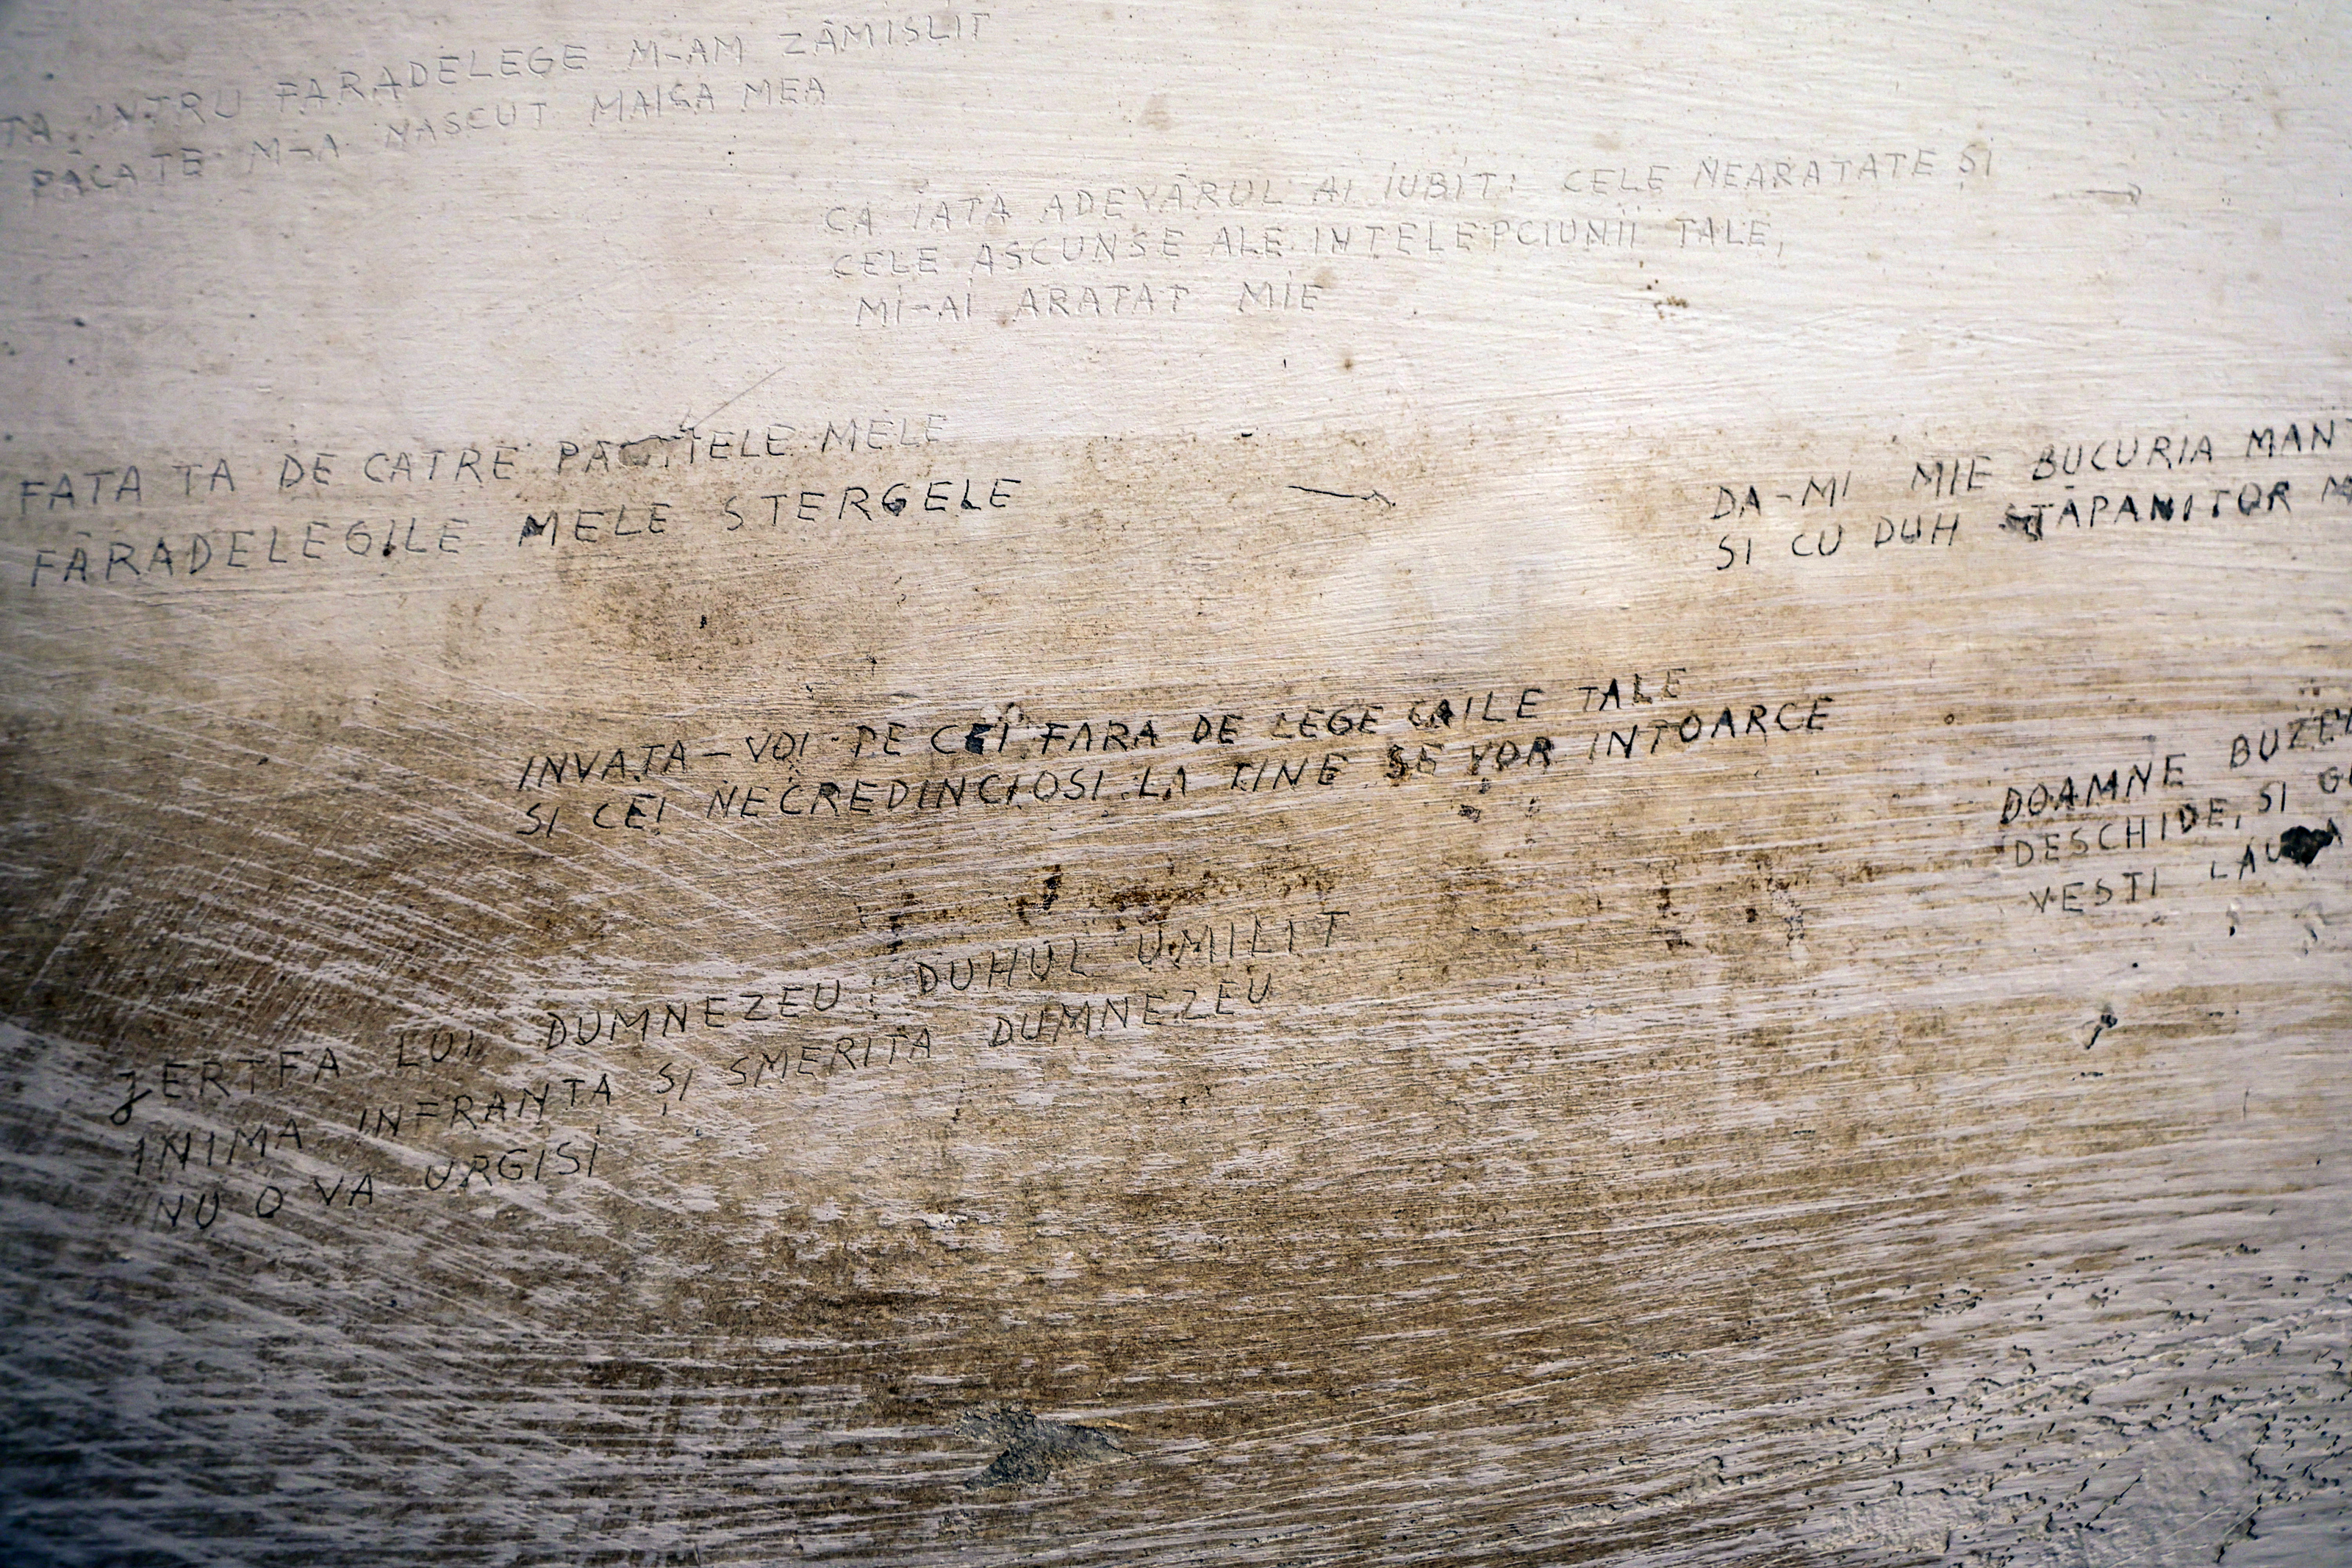 TA, INTRU FARADELEGE M-AM ZĂMISLIT
PĂCATE M-A NASCUT MAICA MEA
CA IATA ADEVĂRUL AI IUBIT: CELE NEARATATE ȘI
CELE ASCUNSE ALE INTELEPCIUNII TALE,
MI-AI ARATAT MIE
FATA TA DE CATRE PACATELE MELE
FĂRADELEGILE MELE STERGELE
DA-MI MIE BUCURIA MAN
SI CU DUH STĂPANITOR M
INVAȚA-VOI PE CEI FARA DE LEGE CAILE TALE
SI CEI NECREDINCIOSI LA TINE SE VOR INTOARCE
DOAMNE BUZEL
DESCHIDE, SI G
VESTI LAUDA
JERTFA LUI DUMNEZEU: DUHUL UMILIT
INIMA INFRANTA ȘI SMERITA DUMNEZEU
NU O VA URGISI